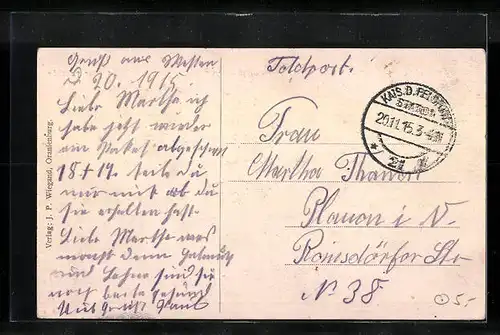 Gruß aus Westen
D. 20. 1915.
Liebe Martha ich
habe jetzt wieder
ein Paket abgeschickt
18 + 19. teile du
mir mit ob du
sie erhalten hast.
Liebe Martha was
macht denn
und sind sie
noch beide gesund
Gruß Paul
Feldpost.
KAIS. D. FELDPOST
20.11.15. 3-4
Frau
Martha
Plauen i. V.
Reinsdörfer Str.
No 38
Verlag: J. P. Wiegand, Oranienburg.